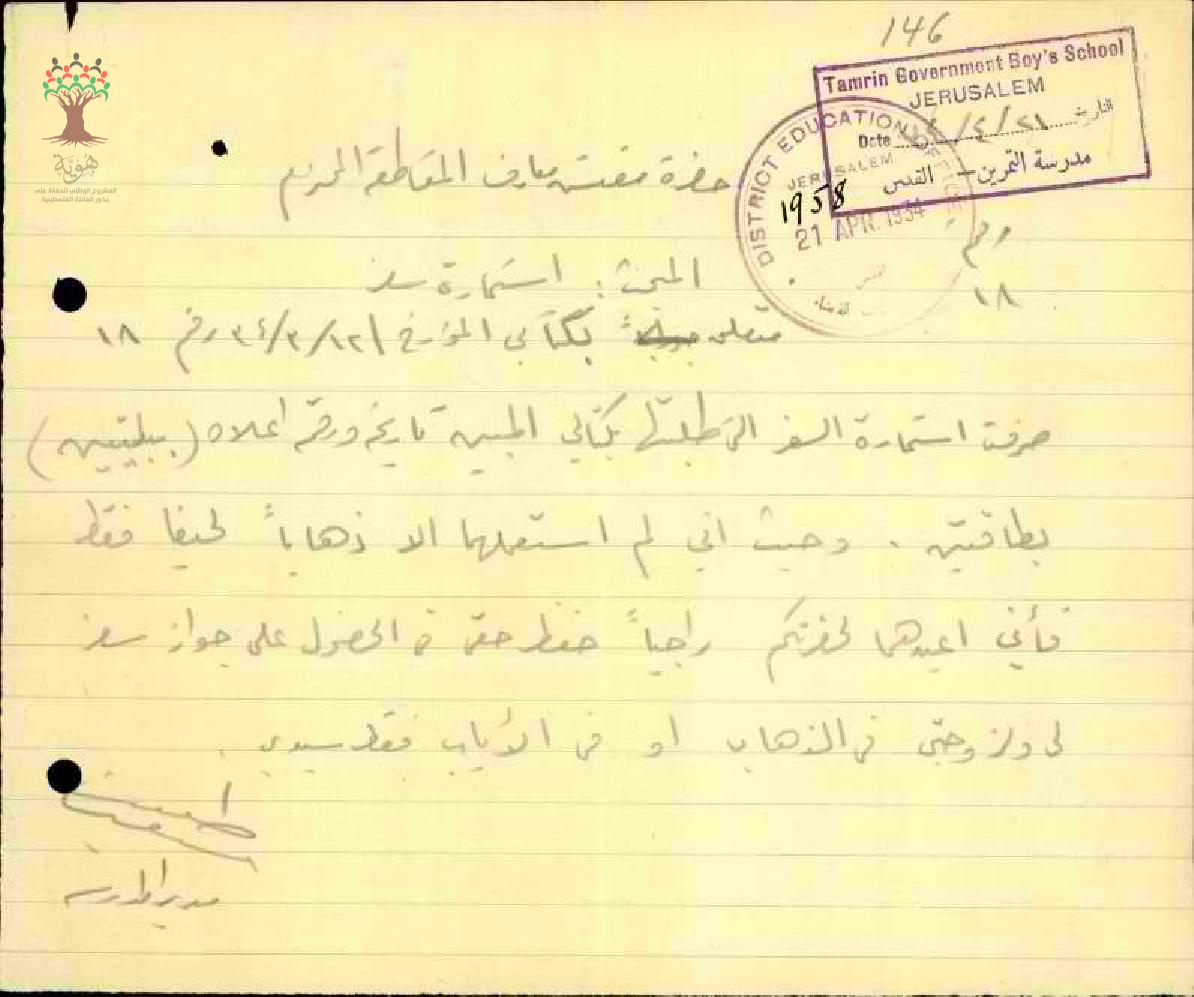 146
Tamrin Government Boy's School
JERUSALEM
Date ٢١/٤/ التاريخ
مدرسة التمرين – القدس
DISTRICT EDUCATION OFFICE
JERUSALEM
1958
21 APR. 1934
هوية
المشروع الوطني للحفاظ على
جذور العائلة الفلسطينية
حضرة مفتش معارف المقاطعة المحترم
رقم
١٨
المبحث : استمارة سفر
متعلق بكتابي المؤرخ ٣٤/٣/١٢ رقم ١٨
صرفت استمارة السفر التي طلبتها بكتابي المبين تاريخه ورقمه اعلاه ( ببليتين )
بطاقتين . وحيث اني لم استعملها الا ذهاباً لحيفا فقط
فأني اعيدهما لحضرتكم راجياً حفظ حقي في الحصول على جواز سفر
لي ولزوجتي في الذهاب او في الأياب فقط سيدي .
مدير المدرسة